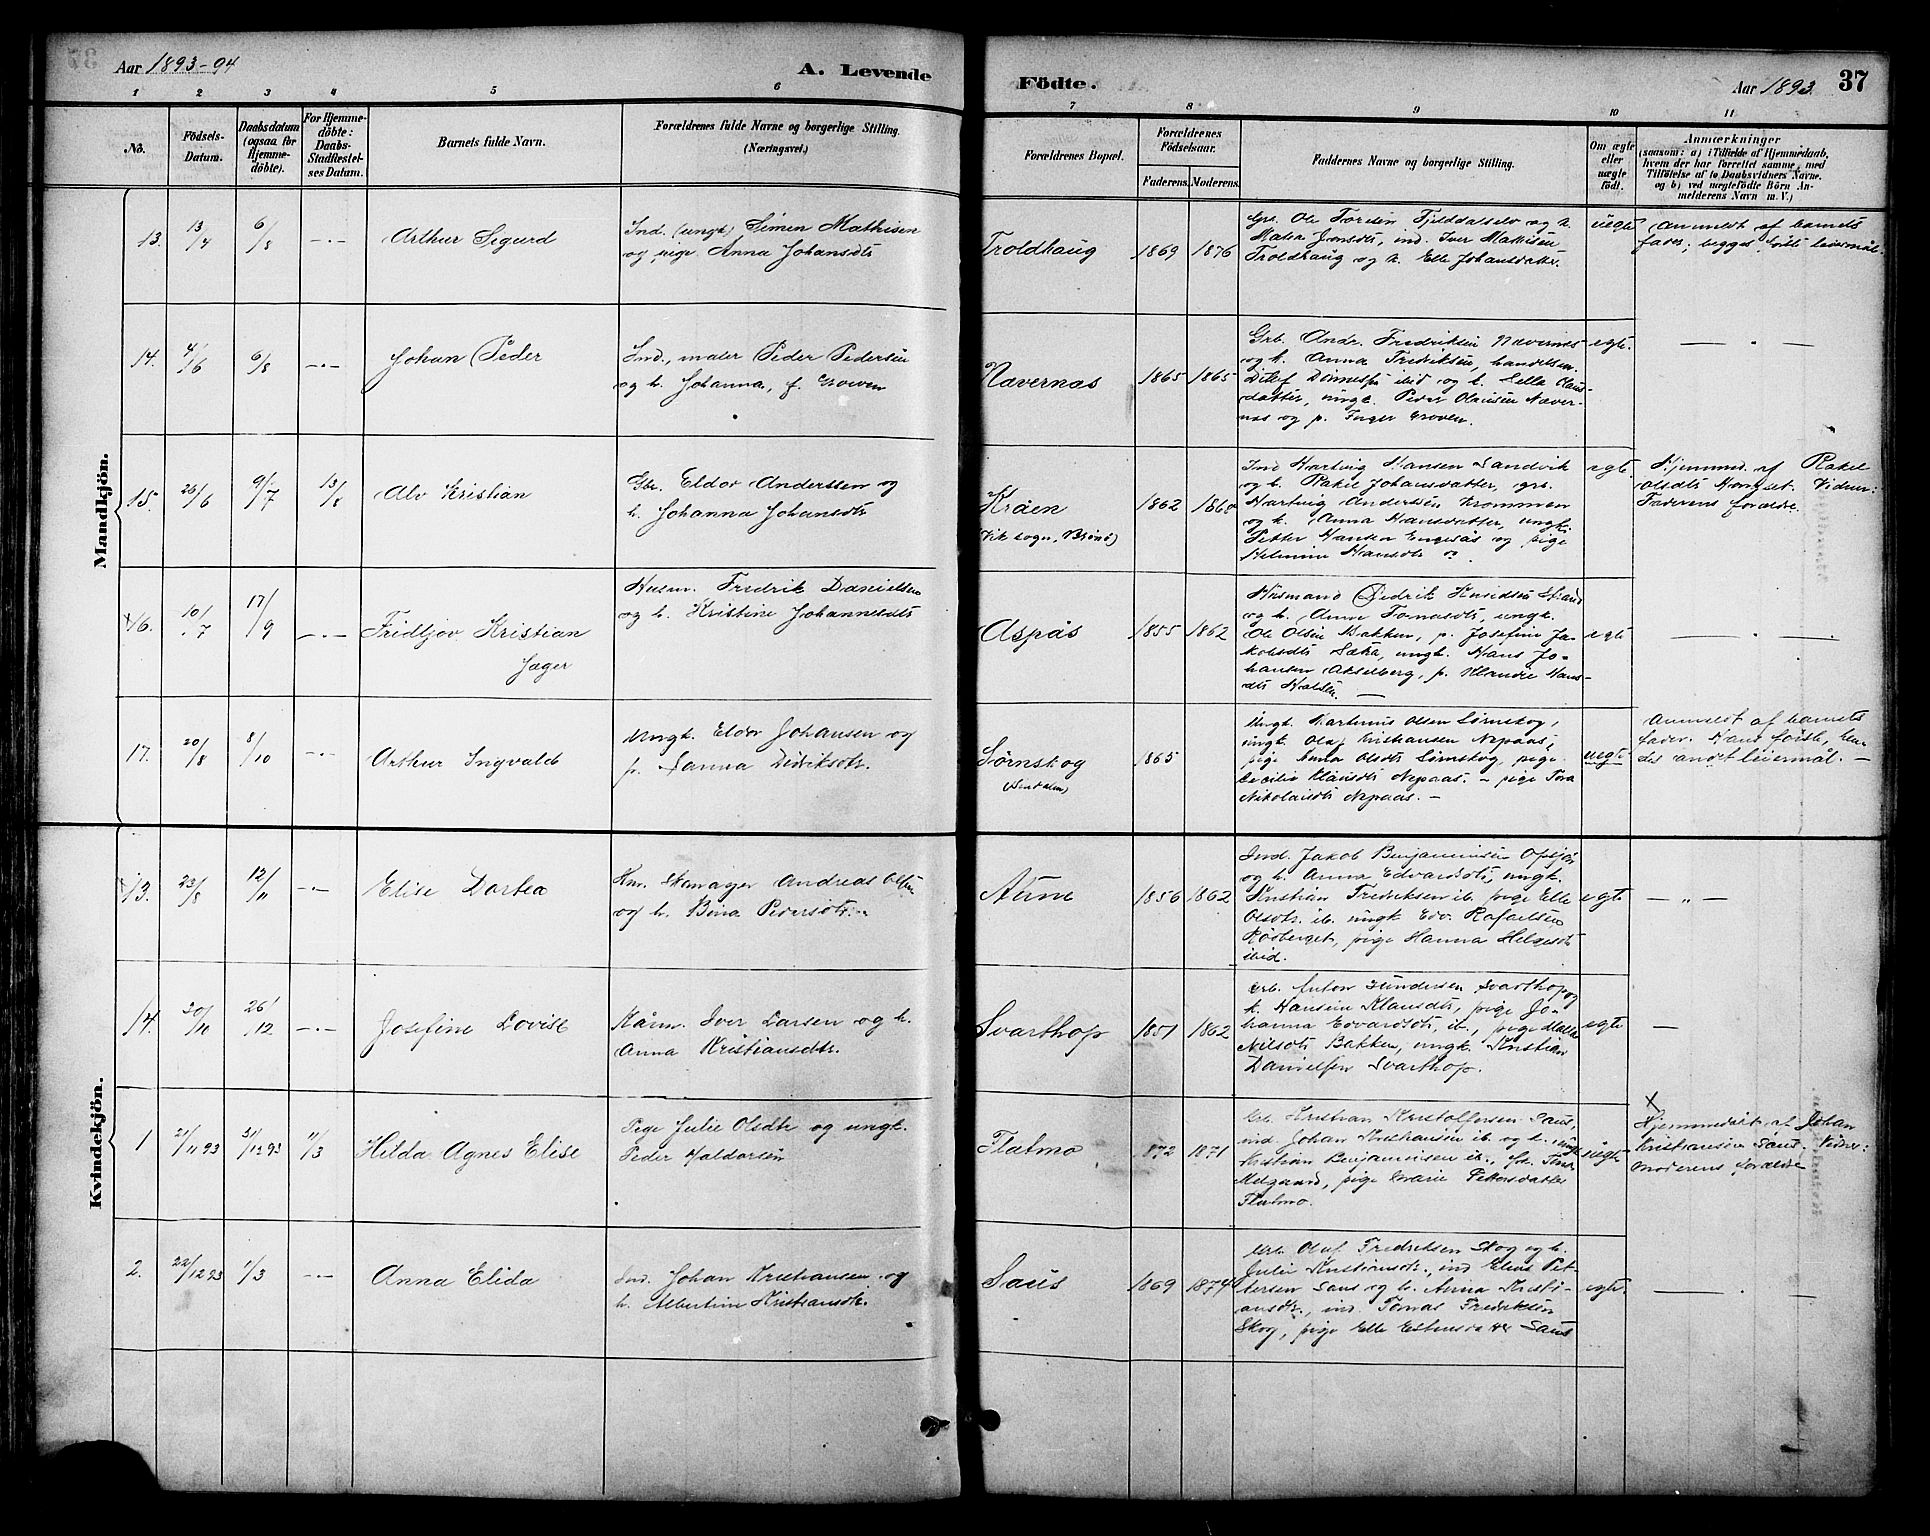 Aar 1893-94
A. Levende
Födte.
Aar 1893.
37
1 2 3 4 5 6 7 8 9 10 11
No.
Födsels-Datum.
Daabsdatum (ogsaa for Hjemmedöbte).
For Hjemmedöbte: Daabs-Stadfæstelses Datum.
Barnets fulde Navn.
Forældrenes fulde Navne og borgerlige Stilling.
(Næringsvei.)
Forældrenes Bopæl.
Forældrenes Födselsaar.
Faderens. Moderens.
Faddernes Navne og borgerlige Stilling.
Om ægte eller uægte födt.
Anmærkninger
(saasom: a) i Tilfælde af Hjemmedaab, hvem der har forrettet samme, med Tilföielse af to Daabsvidners Navne, og b) ved uægtefödte Börn Anmelderens Navn m. V.)
Mandkjön.
13. 13/4 6/8 -"- Arthur Sigurd
Ind. (ungk) Simen Mathisen
og pige Anna Johansdtr
Troldhaug 1869 1876
Gbr. Ole Toresen Fjelddalselv og h.
Jonsdtr, ind. Iver Mathisen
Troldhaug og h. Elle Johansdatter.
uegte
Anmeldt af barnets
fader; begges første leiermål.
14. 4/6 6/8 -"- Johan Peder
Ind., maler Peder Pedersen
og h. Johanna, f. Groven
Navernas 1865 1865
Grb. Andr. Fredriksen Navernes
og h. Anna Fredriksen, handelsm.
Ditlef Dønnesfi ibid og h. Lella Klaus-
datter, ungk. Peder Olausen Naver-
nas og p. Inger Groven.
egte.
— " —
15. 26/6 9/7 13/8 Alv Kristian
Gbr. Eldor Anderssen og
h. Johanna Johansdtr
Kråen 1862 1860
(Vik sogn, Brønø)
Ind Hartvig Hansen Sandvik
og h. Rakel Johansdatter, grb.
Hartvig Andersen Krommen
og h. Anna Hansdatter, ungk.
Petter Hansen Engesås og pige
Helmine Hansdtr
egte
Hjemmed. af Rakel
Olsdtr Horsset. Vidner:
Faderens forældre.
16. 10/7 17/9 -"- Fridtjov Kristian
Jæger
Husm. Fredrik Danielsen
og h. Kristine Johannesdtr
Aspås 1855 1862
Husmand Didrik Knudsen Strand
og h. Anne Tomasdtr, ungk.
Ole Olsen Bakken, p. Josefine Ja-
kobsdtr Sæta, ungk. Hans Jo-
hansen Akselberg, p. Klandie Hans-
dtr Holsen. —
egte
— " —
17. 20/8 8/10 -"- Arthur Ingvald
Ungk. Eldor Johansen og
p. Sanna Didriksdtr.
Sørnskog 1865
Ungk. Martinus Olsen Sørnskog,
ungk. Ola Kristiansen Nepaas,
pige Anna Olsdtr Sørnskog, pige
Cecilie Klausdtr Nepaas. — pige Tora
Nikolaisdtr Nepaas. —
uegte
Anmeldt af barnets
fader. Hans første, hen-
des andet leiermål. —
Kvindekjön.
13. 23/8 12/11 -"- Elise Dortea
Hm. Skomager Andreas Olsen
og h. Bina Pedersdtr.
Aune 1856 1862
Ind. Jakob Benjaminsen Opsjøn
og h. Anna Edvardsdtr, ungk.
Kristian Fredriksen ib. pige Elle
Olsdtr ib. ungk Edv. Rafaelsen
Røsberget, pige Hanna Helgesdtr
ibid.
egte
— " —
14. 30/10 26/12 -"- Josefine Lovise
Kårm. Iver Larsen og h.
Anna Kristiansdtr.
Svarthop 1851 1862
Grb. Anton Gundersen Svarthop og
h. Hansine Klausdtr, pige Jo-
hanna Edvardsdtr, ib., pige
Nilsdtr Bakken, ungk. Kristian
Danielsen Svarthop.
egte
—
1 21/11 93 31/12 93 11/3 Hilda Agnes Elise
Pige Julie Olsdtr og ungk.
Peder Haldorsen
Flatmo 1872 1871
Grb. Kristian Kristoffersen Saus,
ind Johan Kristiansen ib. og h. ungk
Kristian Benjaminsen ib., fru Tina
Melgaard, pige Marie Pettersdatter
Flatmo.
uegte
X
Hjemmedøbt af Johan
Kristiansen Saus. Vidner:
Moderens forældre
2. 22/12 93 4/3 -"- Anna Elida
Ind. Johan Kristiansen og
h. Albertine Kristiansdtr.
Saus 1869 1874
Grb. Oluf Fredriksen Skog og h.
Julie Kristiansdtr., ind Elias Pet-
tersen Saus og h. Anna Kristi-
ansdtr., ind. Tomas Fredriksen
Skog, pige Elle Estensdatter Saus
egte.
— " —